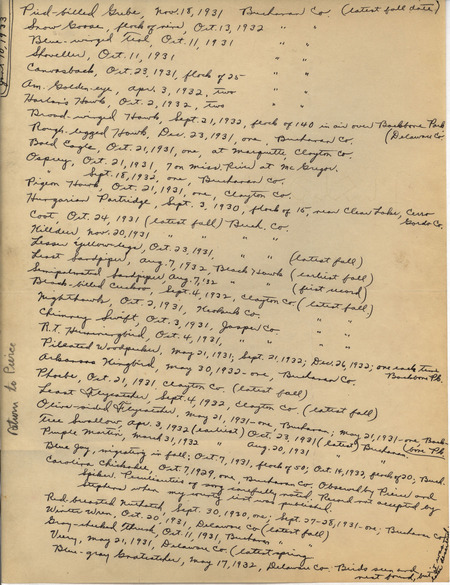 Pied-billed Grebe, Nov. 18, 1931 Buchanan Co. (latest fall date)
Snow Goose, flock of nine, Oct. 13, 1932 " "
Blue-winged Teal, Oct. 11, 1931 " "
Shoveller, Oct. 11, 1931 " "
Canvasback, Oct. 23, 1931, flock of 25 " "
Am. Golden-eye, Apr. 3, 1932, two " "
Harlan's Hawk, Oct. 2, 1932, two " "
Broad-winged Hawk, Sept. 21, 1932, flock of 140 in air over Backbone Park
(Delaware Co.
Rough-legged Hawk, Dec. 23, 1931, one, Buchanan Co.
Bald Eagle, Oct. 21, 1931, one, at Marquette, Clayton Co.
Osprey, Oct. 21, 1931, 7 on Miss. River at McGregor.
" Sept. 18, 1932, one, Buchanan Co.
Pigeon Hawk, Oct. 21, 1931, one, Clayton Co.
Hungarian Partridge, Sept. 3, 1930, flock of 15, near Clear Lake, Cerro
Gordo Co.
Coot, Oct. 24, 1931 (latest fall) Buch. Co.
Killdeer Nov. 20, 1931 " " " "
Lesser Yellow-legs, Oct. 23, 1931, " " (latest fall)
Least Sandpiper, Aug. 7, 1932 Black Hawk (earliest fall)
Semipalmated Sandpiper Aug. 7, '32 " " (first record)
Black-billed Cuckoo, Sept. 4, 1932, Clayton Co. (latest fall)
Nighthawk, Oct. 2, 1931, Keokuk Co. " "
Chimney Swift, Oct. 3, 1931, Jasper Co. " "
R.T. Hummingbird, Oct. 4, 1931, " " " "
Pileated Woodpecker, May 21, 1931; Sept. 21, 1932; Dec. 26, 1932; one each time
Backbone Pk.
Arkansas Kingbird, May 30, 1932 - one, Buchanan Co.
Phoebe, Oct. 21, 1931, Clayton Co. (latest fall)
Least Flycatcher, Sept. 4, 1932, Clayton Co. (latest fall)
Olive-sided Flycatcher, May 21, 1931 - one, Buchanan; May 21, 1931 - one, Back-
bone Pk.
Tree Swallow, Apr. 3, 1932 (earliest) Oct. 23, 1931 (latest) Buchanan
Purple Martin, March 31, 1932 " Aug. 20, 1931 " "
Blue Jay, migrating in fall; Oct. 7, 1931, flock of 50; Oct. 14, 1932, flock of 20; Buch.
Carolina Chickadee, Oct. 7, 1929, one, Buchanan Co. Observed by Pierce and
Spiker. Peculiarities of song carefully noted. Record not accepted by
Stephens when my county list was published.
Red-breasted Nuthatch, Sept. 30, 1930, one; Sept. 27-28, 1931 - one; Buchanan Co.
Winter Wren, Oct. 20, 1931, Delaware Co. (latest fall)
Gray-cheeked Thrush, Oct. 11, 1931, Buchanan " "
Veery, May 21, 1931, Delaware Co. (latest spring
Blue-gray Gnatcatcher, May 17, 1932, Delaware Co. Birds seen and
nest found, but
Return to Pierce